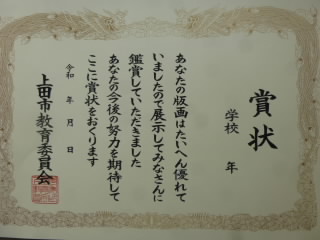 賞状
学校 年
あなたの版画はたいへん優れて
いましたので展示してみなさんに
鑑賞していただきました
あなたの今後の努力を期待して
ここに賞状をおくります
令和 年 月 日
上田市教育委員会